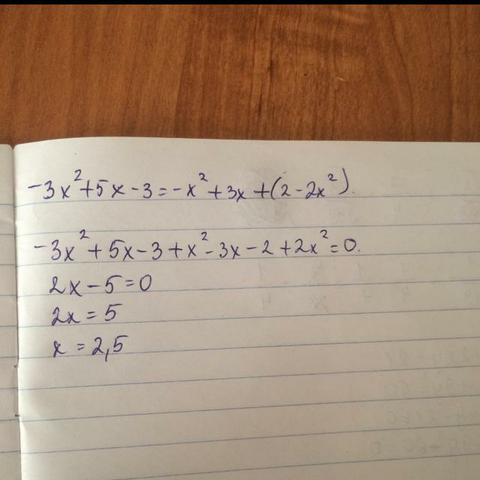 -3x²+5x-3=-x²+3x+(2-2x²).
-3x²+5x-3+x²-3x-2+2x²=0.
2x-5=0
2x=5
x=2,5